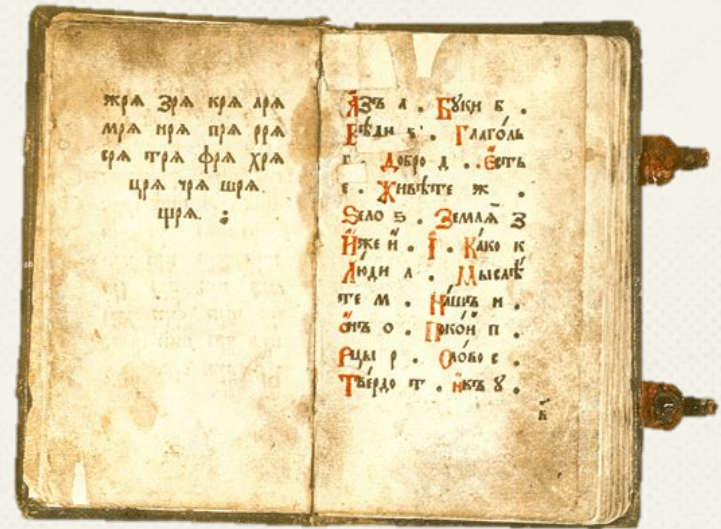 жрѧ зрѧ крѧ лрѧ
мрѧ нрѧ прѧ ррѧ
срѧ трѧ фрѧ хрѧ
црѧ чрѧ шрѧ.
щрѧ.
Азъ а . Бꙋки б .
Вѣди в . Глаго́ль
г . Добро д . Є҆сть
е . Живѣ́те ж .
Ѕело ѕ . Землѧ̀ з
И҆́же и҆ . І҆ . Ка́ко к
Лю́ди л . Мыслѣ́
те м . На́шъ н .
О҆́нъ о . Поко́й п .
Рцы р . Сло́во с .
Тве́рдо т . и҆къ ꙋ .